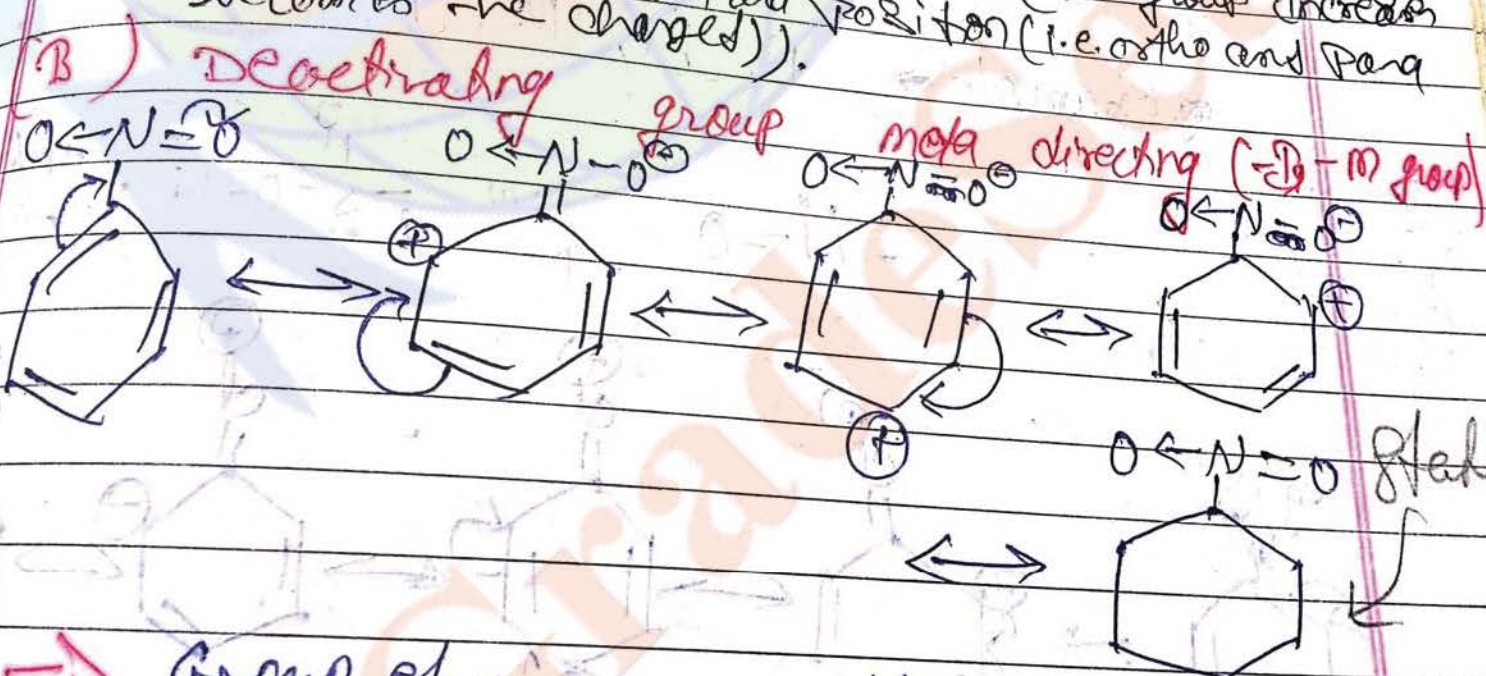 the charges)). Position (i.e. ortho and para
(B) Deactivating group meta directing (-I, -M group)
O←N=O
O←N-O⊖
O←N=O⊖
O←N=O⊖
⊕
⊕
⊕
O←N=O
⇒ Group of